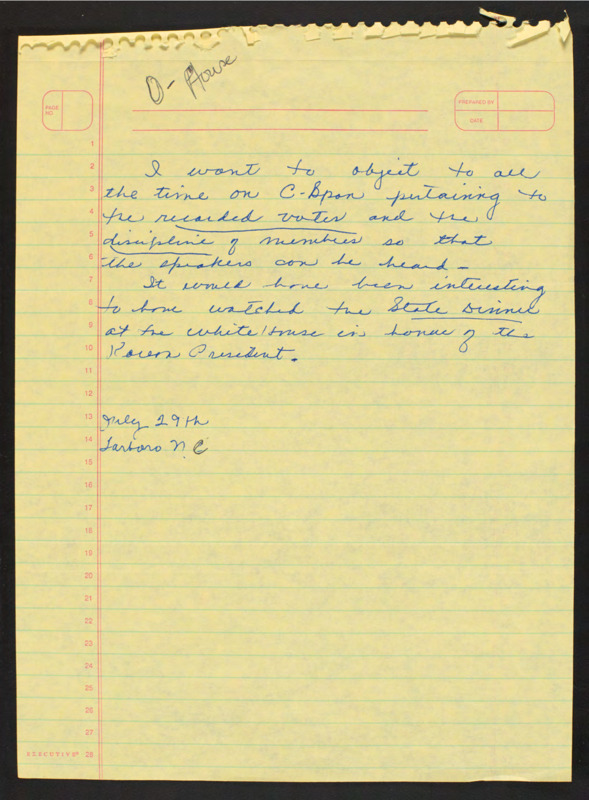 O- House
PAGE NO
PREPARED BY
DATE
1
2 I want to object to all
3 the time on C-Span pertaining to
4 the recorded votes and the
5 discipline of members so that
6 the speakers can be heard -
7 It would have been interesting
8 to have watched the State Dinner
9 at the White House in honor of the
10 Korean President.
11
12
13 July 29th
14 Tarboro N.C
15
16
17
18
19
20
21
22
23
24
25
26
27
EXECUTIVE® 28